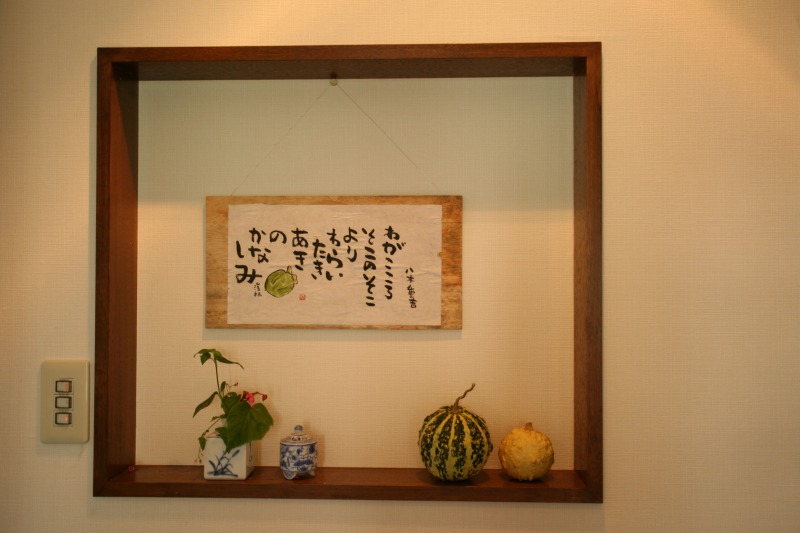 八木重吉
わがこころ
そこのそこ
より
わらい
たき
あき
の
かな
しみ